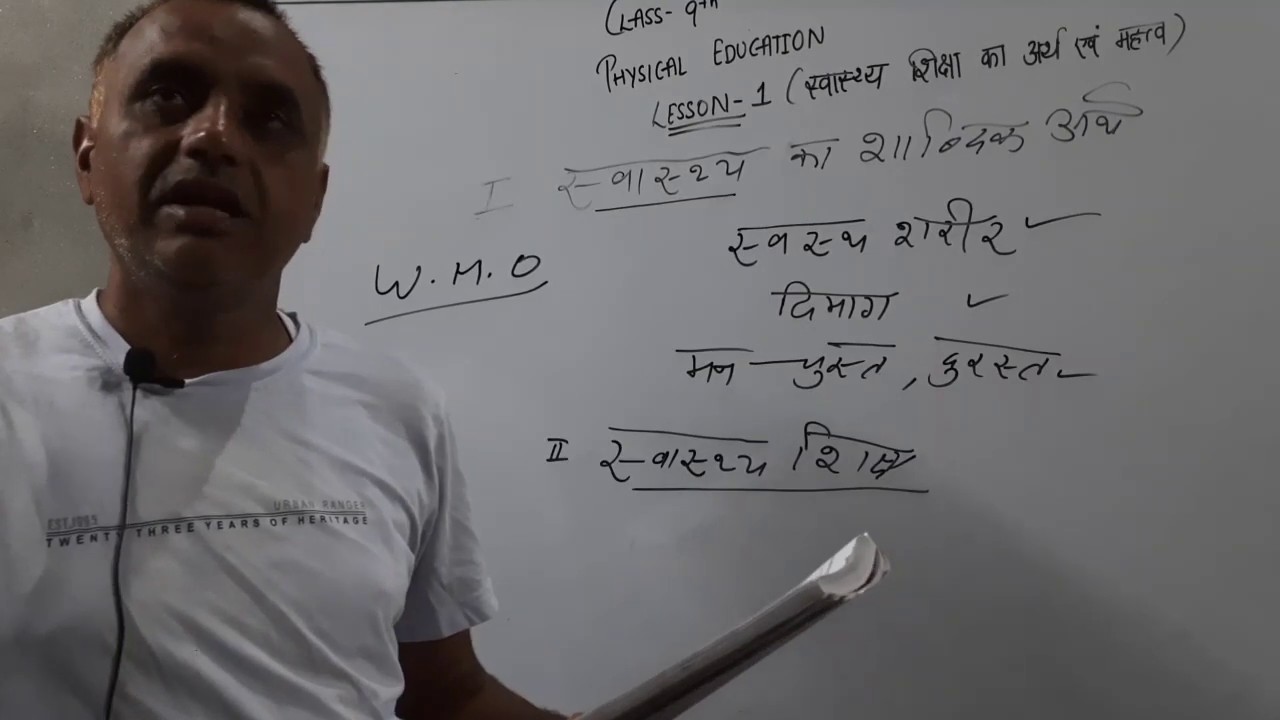 CLASS- 9th
PHYSICAL EDUCATION
LESSON-1 (स्वास्थ्य शिक्षा का अर्थ एवं महत्व)
I स्वास्थ्य का शाब्दिक अर्थ
W.H.O
स्वस्थ शरीर
दिमाग
मन - चुस्त, दुरस्त
II स्वास्थ्य शिक्षा
URBAN RANGER
TWENTY THREE YEARS OF HERITAGE